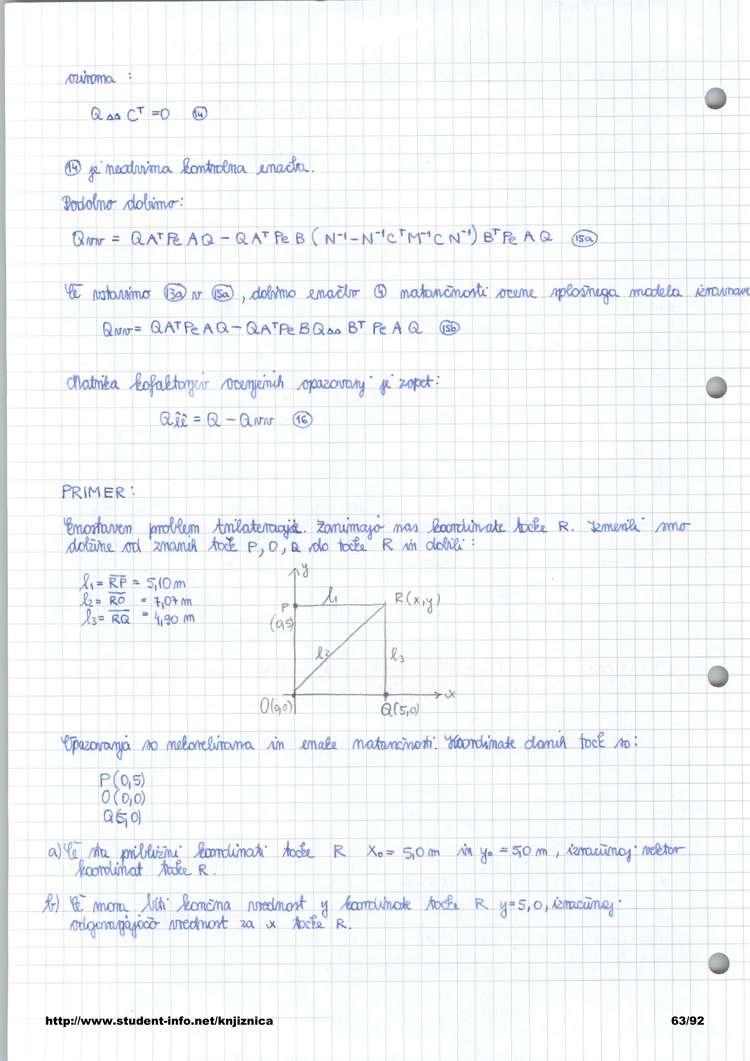 oziroma :
QΔΔ Cᵀ = 0 (14)
(14) je neodvisna kontrolna enačba.
Podobno dobimo:
Qvv = QAᵀPeAQ - QAᵀPeB (N⁻¹-N⁻¹CᵀM⁻¹CN⁻¹) BᵀPeAQ (15a)
Če vstavimo (13a) v (15a), dobimo enačbo natančnosti ocene splošnega modela izravnave
Qvv = QAᵀPeAQ - QAᵀPeBQΔΔ BᵀPeAQ (15b)
Matrika kofaktorjev ocenjenih opazovanj je zopet:
Ql̂l̂ = Q - Qvv (16)
PRIMER:
Enostaven problem trilateracije. Zanimajo nas koordinate točke R. Izmerili smo
dolžine od znanih točk P, O, Q do točke R in dobili:
l₁ = RP = 5,10 m
l₂ = RO = 7,07 m
l₃ = RQ = 4,90 m
y
P
(0,5)
l₁
R(x,y)
l₂
l₃
O(0,0)
Q(5,0)
x
Opazovanja so nekorelirana in enake natančnosti. Koordinate danih točk so:
P(0,5)
O(0,0)
Q(5,0)
a) Če sta približni koordinati točke R x₀ = 5,0 m in y₀ = 5,0 m, izračunaj vektor
koordinat točke R.
b) Če mora biti končna vrednost y koordinate točke R y = 5,0, izračunaj
odgovarjajočo vrednost za x točke R.
http://www.student-info.net/knjiznica
63/92